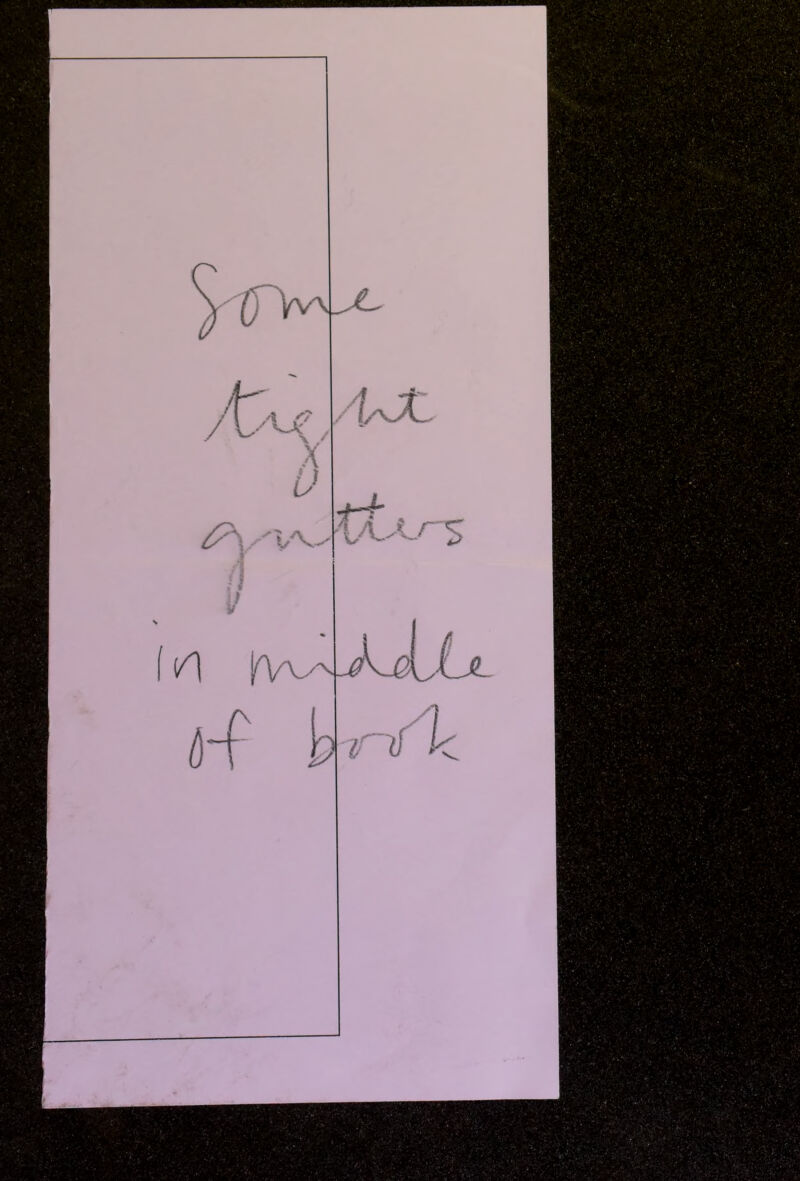 Some
tight
gutters
in middle
of book